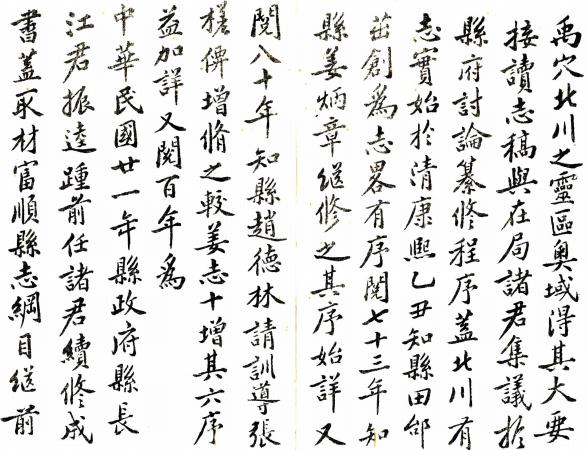 禹穴北川之靈區奧域得其大要
接讀志稿與在局諸君集議於
縣府討論纂修程序蓋北川有
志實始於清康熙乙丑知縣田邰
茁創爲志畧有序閱七十三年知
縣姜炳章繼修之其序始詳又
閱八十年知縣趙德林請訓導張
槎俾增脩之較姜志十增其六序
益加詳又閱百年爲
中華民國廿一年縣政府縣長
江君振逵踵前任諸君續修成
書蓋取材富順縣志綱目繼前